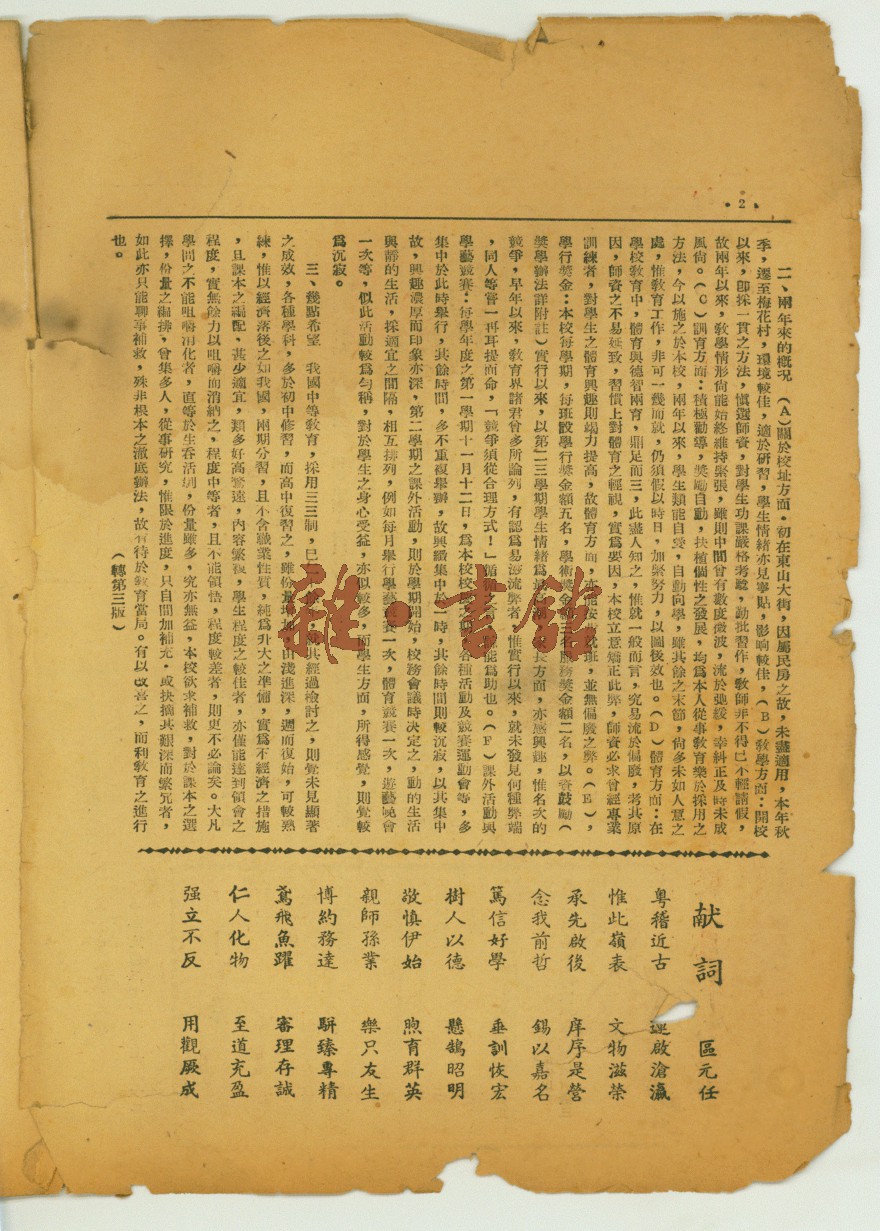 2
二、兩年來的概況 (A)關於校址方面・初在東山大街，因屬民房之故，未盡適用，本年秋
季，遷至梅花村，環境較佳，適於研習，學生情緒亦見寧貼，影响較佳，(B)教學方面：開校
以來，卽採一貫之方法，愼選師資，對學生功課嚴格考驗，勤批習作，敎師非不得已不輕請假，
故兩年以來，敎學情形尙能始終維持緊張，雖則中間曾有數度微波，流於弛緩，幸糾正及時未成
風尙。(C)訓育方面：積極勸導，獎勵自動，扶植個性之發展，均爲本人從事敎育樂於採用之
方法，今以施之於本校，兩年以來，學生類能自愛，自動向學，雖其餘之末節，尙多未如人意之
處，惟敎育工作，非可一幾而就，仍須假以時日，加緊努力，以圖後效也。(D)體育方面：在
學校敎育中，體育與德智兩育，鼎足而三，此盡人知之，惟就一般而言，究易流於偏廢，考其原
因，師資之不易延致，習慣上對體育之輕視，實爲要因，本校立意矯正此弊，師資必求曾經專業
訓練者，對學生之體育興趣則竭力提高，故體育方面，亦能按班就班，並無偏廢之弊。(E)，
學行奬金：本校每學期，每班設學行奬金額五名，學術奬金額三名服務奬金額二名，以資鼓勵(
奬學辦法詳附註)實行以來，以第二三學期學生情緒爲最 方面，亦感興趣，惟名次的
競爭，早年以來，敎育界諸君曾多所論列，有認爲易滋流弊者，惟實行以來，就未發見何種弊端
，同人等嘗一再耳提而命，「競爭須從合理方式！」 能爲助也。(F)課外活動與
學藝競賽：每學年度之第一學期十一月十二日，爲本校校 各種活動及競賽運動會等，多
集中於此時舉行，其餘時間，多不重複舉辦，故興緻集中於一時，其餘時間則較沉寂，以其集中
故，興趣濃厚而印象亦深，第二學期之課外活動，則於學期開始，校務會議時決定之，動的生活
與靜的生活，採適宜之間隔，相互排列，例如每月舉行學藝競賽一次，體育競賽一次，遊藝晚會
一次等，似此活動較爲勻稱，對於學生之身心受益，亦似較多，而學生方面，所得感覺，則覺較
爲沉寂。
三、幾點希望 我國中等敎育，採用三三制，已 其經過檢討之，則覺未見顯著
之成效，各種學科，多於初中修習，而高中復習之，雖份量增加，由淺進深，週而復始，可較熟
練，惟以經濟落後之如我國，兩期分習，且不含職業性質，純爲升大之準備，實爲不經濟之措施
，且課本之編配，甚少適宜，類多好高騖遠，內容繁複，學生程度之較佳者，亦僅能達到領會之
程度，實無餘力以咀嚼而消納之，程度中等者，且不能領悟，程度較差者，則更不必論矣。大凡
學問之不能咀嚼消化者，直等於生吞活剝，份量雖多，究亦無益，本校欲求補救，對於課本之選
擇，份量之編排，曾集多人，從事研究，惟限於進度，只自間加補充・或抉摘其艱深而繁冗者，
如此亦只能聊事補救，殊非根本之澈底辦法，故有待於敎育當局。有以改善之，而利敎育之進行
也。 (轉第三版)
献詞 區元任
粤稽近古 啟滄瀛
惟此嶺表 文物滋榮
承先啟後 庠序是營
念我前哲 錫以嘉名
篤信好學 垂訓恢宏
樹人以德 懸鵠昭明
敬慎伊始 煦育群英
親師孫業 樂只友生
博約務達 駢臻專精
鳶飛魚躍 審理存誠
仁人化物 至道充盈
强立不反 用觀厥成
雜・書館